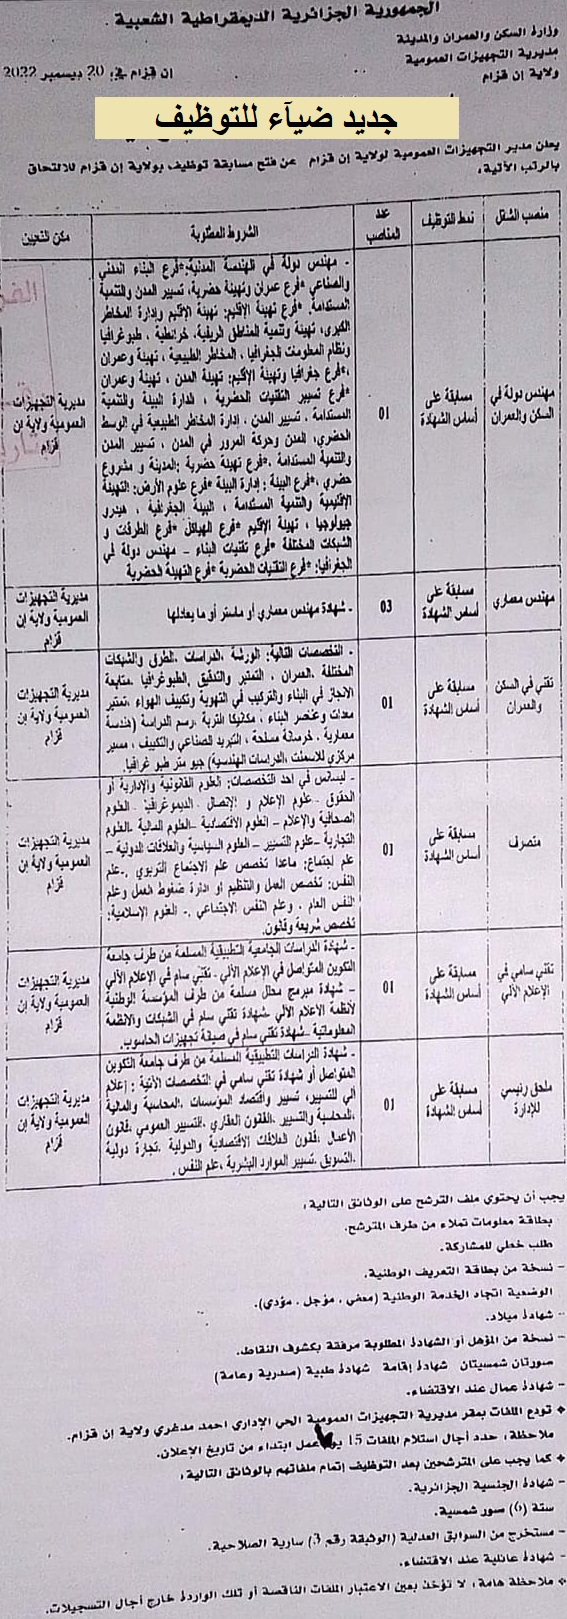 الجمهورية الجزائرية الديمقراطية الشعبية
وزارة السكن والعمران والمدينة
مديرية التجهيزات العمومية
ولاية إن قزام
ان قزام في: 20 ديسمبر 2022
جديد ضيآء للتوظيف
يعلن مدير التجهيزات العمومية لولاية إن قزام عن فتح مسابقة توظيف بولاية إن قزام للالتحاق
بالرتب الآتية:
منصب الشغل
نمط التوظيف
عدد المناصب
الشروط المطلوبة
مكن التعيين
مهندس دولة في السكن والعمران
مسابقة على أساس الشهادة
01
- مهندس دولة في الهندسة المدنية: *فرع البناء المدني
والصناعي *فرع عمران وتهيئة حضرية، تسيير المدن والتنمية
المستدامة، *فرع تهيئة الإقليم: تهيئة الإقليم وإدارة المخاطر
الكبرى، تهيئة وتنمية المناطق الريفية، خرائطية ، طبوغرافيا
ونظام المعلومات للجغرافيا ، المخاطر الطبيعية ، تهيئة وعمران
،*فرع جغرافيا وتهيئة الإقليم: تهيئة المدن ، تهيئة وعمران
*فرع تسيير التقنيات الحضرية ، إدارة البيئة والتنمية
المستدامة ، تسيير المدن ، إدارة المخاطر الطبيعية في الوسط
الحضري، المدن وحركة المرور في المدن ، تسيير المدن
والتنمية المستدامة ،*فرع تهيئة حضرية :المدينة و مشروع
حضري ،*فرع البيئة : إدارة البيئة *فرع علوم الأرض: التهيئة
الإقليمية والتنمية المستدامة ، البيئة الجغرافية ، هيدرو
جيولوجيا ، تهيئة الإقليم *فرع الهياكل *فرع الطرقات و
الشبكات المختلفة *فرع تقنيات البناء - مهندس دولة في
الجغرافيا: *فرع التقنيات الحضرية *فرع التهيئة الحضرية
مديرية التجهيزات العمومية ولاية إن قزام
مهندس معماري
مسابقة على أساس الشهادة
03
- شهادة مهندس معماري أو ماستر أو ما يعادلها
مديرية التجهيزات العمومية ولاية إن قزام
تقني في السكن والعمران
مسابقة على أساس الشهادة
01
- التخصصات التالية: الورشة ،الدراسات ،الطرق والشبكات
المختلفة ،العمران ، التمتير والتدقيق ،الطبوغرافيا ،متابعة
الانجاز في البناء والتركيب في التهوية وتكييف الهواء ،تمتير
معدات وعنصر البناء ، مكانيكا التربة ،رسم الدراسة (هندسة
معمارية ، خرسانة مسلحة ، التبريد الصناعي والتكييف ، مسير
مركزي للاسمنت ،الدراسات الهندسية) جيو متر طبو غرافيا.
مديرية التجهيزات العمومية ولاية إن قزام
متصرف
مسابقة على أساس الشهادة
01
- ليسانس في احد التخصصات: العلوم القانونية والإدارية أو
الحقوق - علوم الإعلام و الإتصال - الديموغرافيا- العلوم
الصحافية والإعلام – العلوم الاقتصادية – العلوم المالية -العلوم
التجارية –علوم التسيير – العلوم السياسية والعلاقات الدولية –
علم إجتماع: ماعدا تخصص علم الاجتماع التربوي .-علم
النفس: تخصص العمل والتنظيم أو ادارة ضغوط العمل وعلم
النفس العام ، وعلم النفس الاجتماعي .- العلوم الإسلامية:
تخصص شريعة وقانون.
مديرية التجهيزات العمومية ولاية إن قزام
تقني سامي في الإعلام الآلي
مسابقة على أساس الشهادة
01
- شهادة الدراسات الجامعية التطبيقية المسلمة من طرف جامعة
التكوين المتواصل في الإعلام الآلي - تقني سام في الإعلام الآلي
- شهادة مبرمج محلل مسلمة من طرف المؤسسة الوطنية
لأنظمة الأعلام الآلي -شهادة تقني سام في الشبكات والانظمة
المعلوماتية –شهادة تقني سام في صيانة تجهيزات الحاسوب.
مديرية التجهيزات العمومية ولاية إن قزام
ملحق رئيسي للإدارة
مسابقة على أساس الشهادة
01
- شهادة الدراسات التطبيقية المسلمة من طرف جامعة التكوين
المتواصل أو شهادة تقني سامي في التخصصات الآتية : إعلام
ألي للتسيير، تسيير واقتصاد المؤسسات ،المحاسبة والمالية
،المحاسبة والتسيير، القانون العقاري ،التسيير العمومي ،قانون
الأعمال ،قانون العلاقات الاقتصادية والدولية ،تجارة دولية
،التسويق ،تسيير الموارد البشرية ،علم النفس .
مديرية التجهيزات العمومية ولاية إن قزام
يجب أن يحتوي ملف الترشح على الوثائق التالية:
بطاقة معلومات تملاء من طرف المترشح.
طلب خطي للمشاركة.
– نسخة من بطاقة التعريف الوطنية.
الوضعية اتجاه الخدمة الوطنية (معفي ، مؤجل ، مؤدي).
– شهادة ميلاد.
– نسخة من المؤهل أو الشهادة المطلوبة مرفقة بكشوف النقاط.
صورتان شمسيتان شهادة إقامة شهادة طبية (صدرية وعامة)
– شهادة عمل عند الاقتضاء.
❖ تودع الملفات بمقر مديرية التجهيزات العمومية الحي الإداري احمد مدغري ولاية إن قزام.
ملاحظة : حدد أجال استلام الملفات 15 يوم عمل ابتداء من تاريخ الإعلان.
❖ كما يجب على المترشحين بعد التوظيف إتمام ملفاتهم بالوثائق التالية:
– شهادة الجنسية الجزائرية.
ستة (6) صور شمسية.
– مستخرج من السوابق العدلية (الوثيقة رقم 3) سارية الصلاحية.
– شهادة عائلية عند الاقتضاء.
❖ ملاحظة هامة: لا تؤخذ بعين الاعتبار الملفات الناقصة أو تلك الواردة خارج أجال التسجيلات.